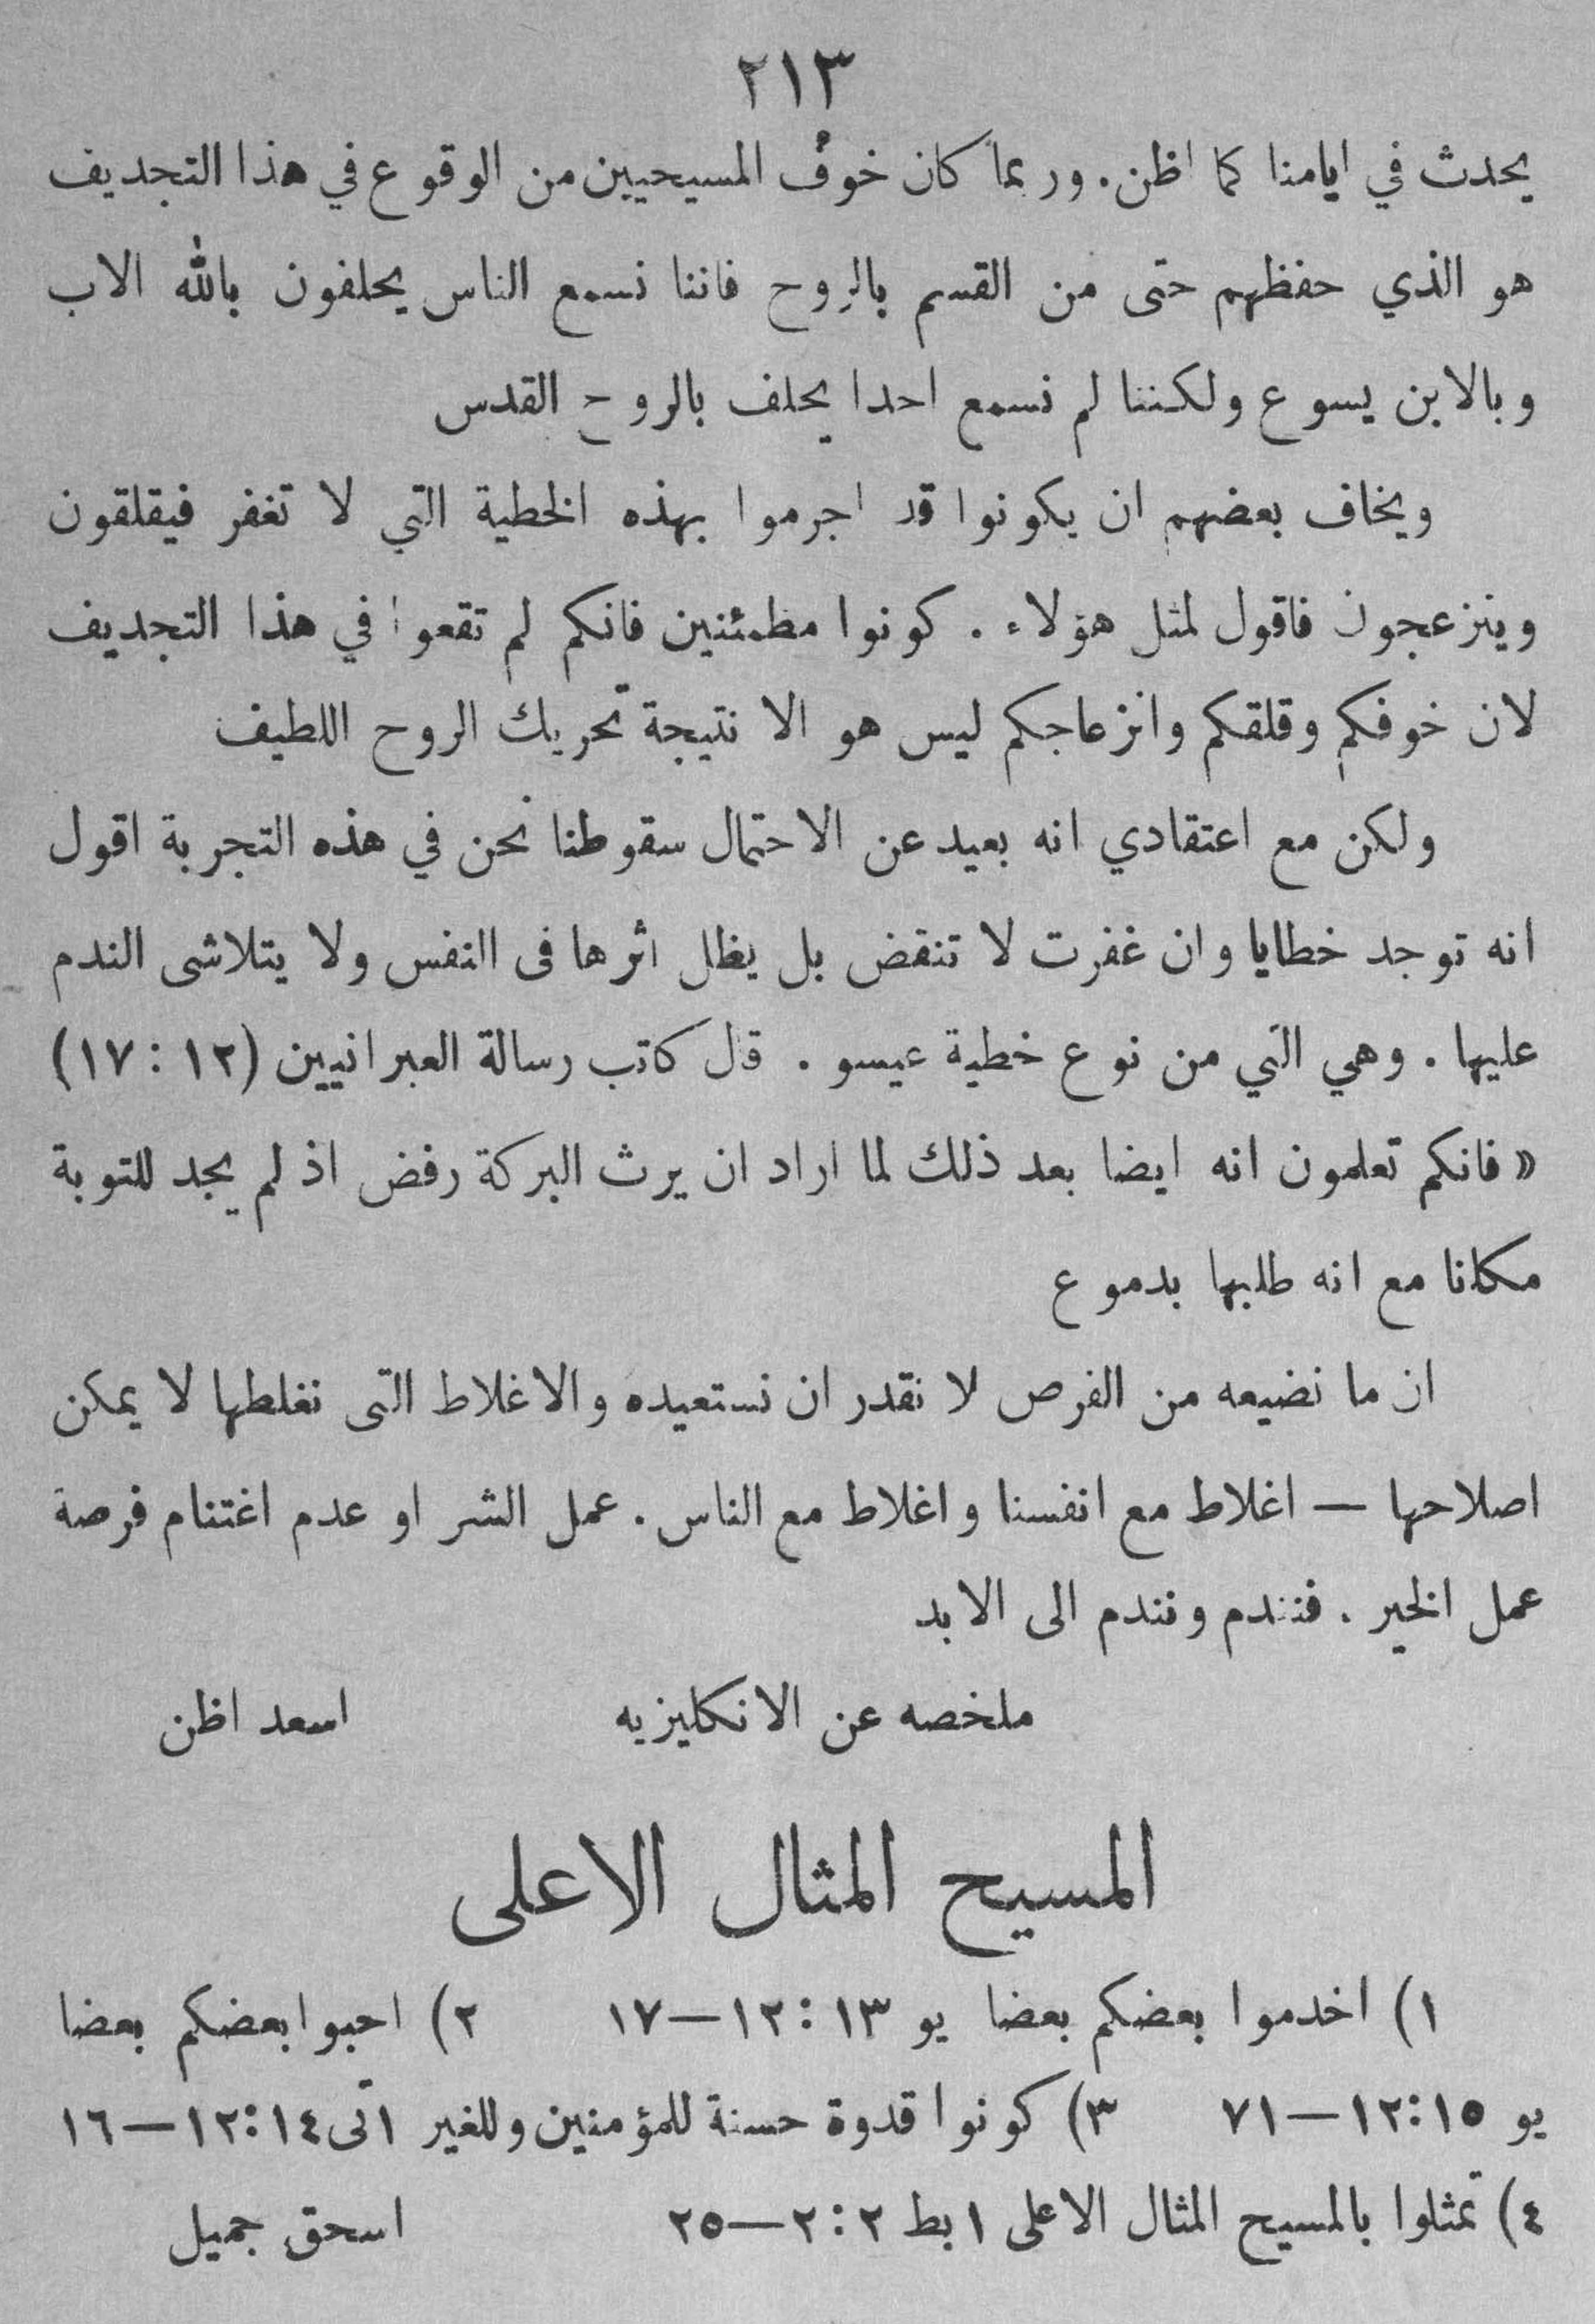 ٢١٣
يحدث في ايامنا كما اظن. وربما كان خوف المسيحيين من الوقوع في هذا التجديف
هو الذي حفظهم حتى من القسم بالروح فاننا نسمع الناس يحلفون بالله الاب
وبالابن يسوع ولكننا لم نسمع احدا يحلف بالروح القدس
ويخاف بعضهم ان يكونوا قد اجرموا بهذه الخطية التي لا تغفر فيقلقون
وينزعجون فاقول لمثل هؤلاء . كونوا مطمئنين فانكم لم تقعوا في هذا التجديف
لان خوفكم وقلقكم وانزعاجكم ليس هو الا نتيجة تحريك الروح اللطيف
ولكن مع اعتقادي انه بعيد عن الاحتمال سقوطنا نحن في هذه التجربة اقول
انه توجد خطايا وان غفرت لا تنقض بل يظل اثرها فى النفس ولا يتلاشى الندم
عليها . وهي التي من نوع خطية عيسو . قال كاتب رسالة العبرانيين (١٢ : ١٧)
« فانكم تعلمون انه ايضا بعد ذلك لما اراد ان يرث البركة رفض اذ لم يجد للتوبة
مكانا مع انه طلبها بدموع
ان ما نضيعه من الفرص لا نقدر ان نستعيده والاغلاط التى نغلطها لا يمكن
اصلاحها — اغلاط مع انفسنا واغلاط مع الناس . عمل الشر او عدم اغتنام فرصة
عمل الخير . فنندم ونندم الى الابد
ملخصه عن الانكليزيه اسعد اظن
المسيح المثال الاعلى
١) اخدموا بعضكم بعضا يو ١٣ : ١٢—١٧ ٢) احبوا بعضكم بعضا
يو ١٥ : ١٢—٧١ ٣) كونوا قدوة حسنة للمؤمنين وللغير ١تى ٤ : ١٢—١٦
٤) تمثلوا بالمسيح المثال الاعلى ١ بط ٢ : ٢—٢٥ اسحق جميل